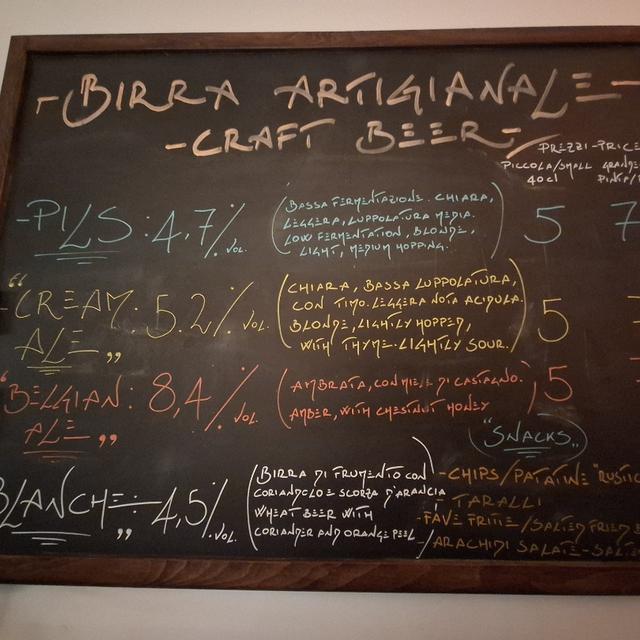 - BIRRA ARTIGIANALE -
- CRAFT BEER -
PREZZI - PRICE
PICCOLA/SMALL GRANDE
40cl PINTA/
- PILS : 4,7% VOL. (BASSA FERMENTAZIONE. CHIARA, 5 7
LEGGERA, LUPPOLATURA MEDIA.
LOW FERMENTATION, BLONDE,
LIGHT, MEDIUM HOPPING.)
- "CREAM : 5.2% VOL. (CHIARA, BASSA LUPPOLATURA, 5
ALE" CON TIMO. LEGGERA NOTA ACIDULA.
BLONDE, LIGHTLY HOPPED,
WITH THYME. LIGHTLY SOUR.)
"BELGIAN : 8,4% VOL. (AMBRATA, CON MIELE DI CASTAGNO. 5
ALE" AMBER, WITH CHESTNUT HONEY)
BLANCHE" : 4,5% VOL. (BIRRA DI FRUMENTO CON
CORIANDOLO E SCORZA D'ARANCIA
WHEAT BEER WITH
CORIANDER AND ORANGE PEEL)
"SNACKS"
- CHIPS / PATATINE "RUSTIC
- TARALLI
- FAVE FRITTE / SALTED FRIED
- ARACHIDI SALATE - SALTE